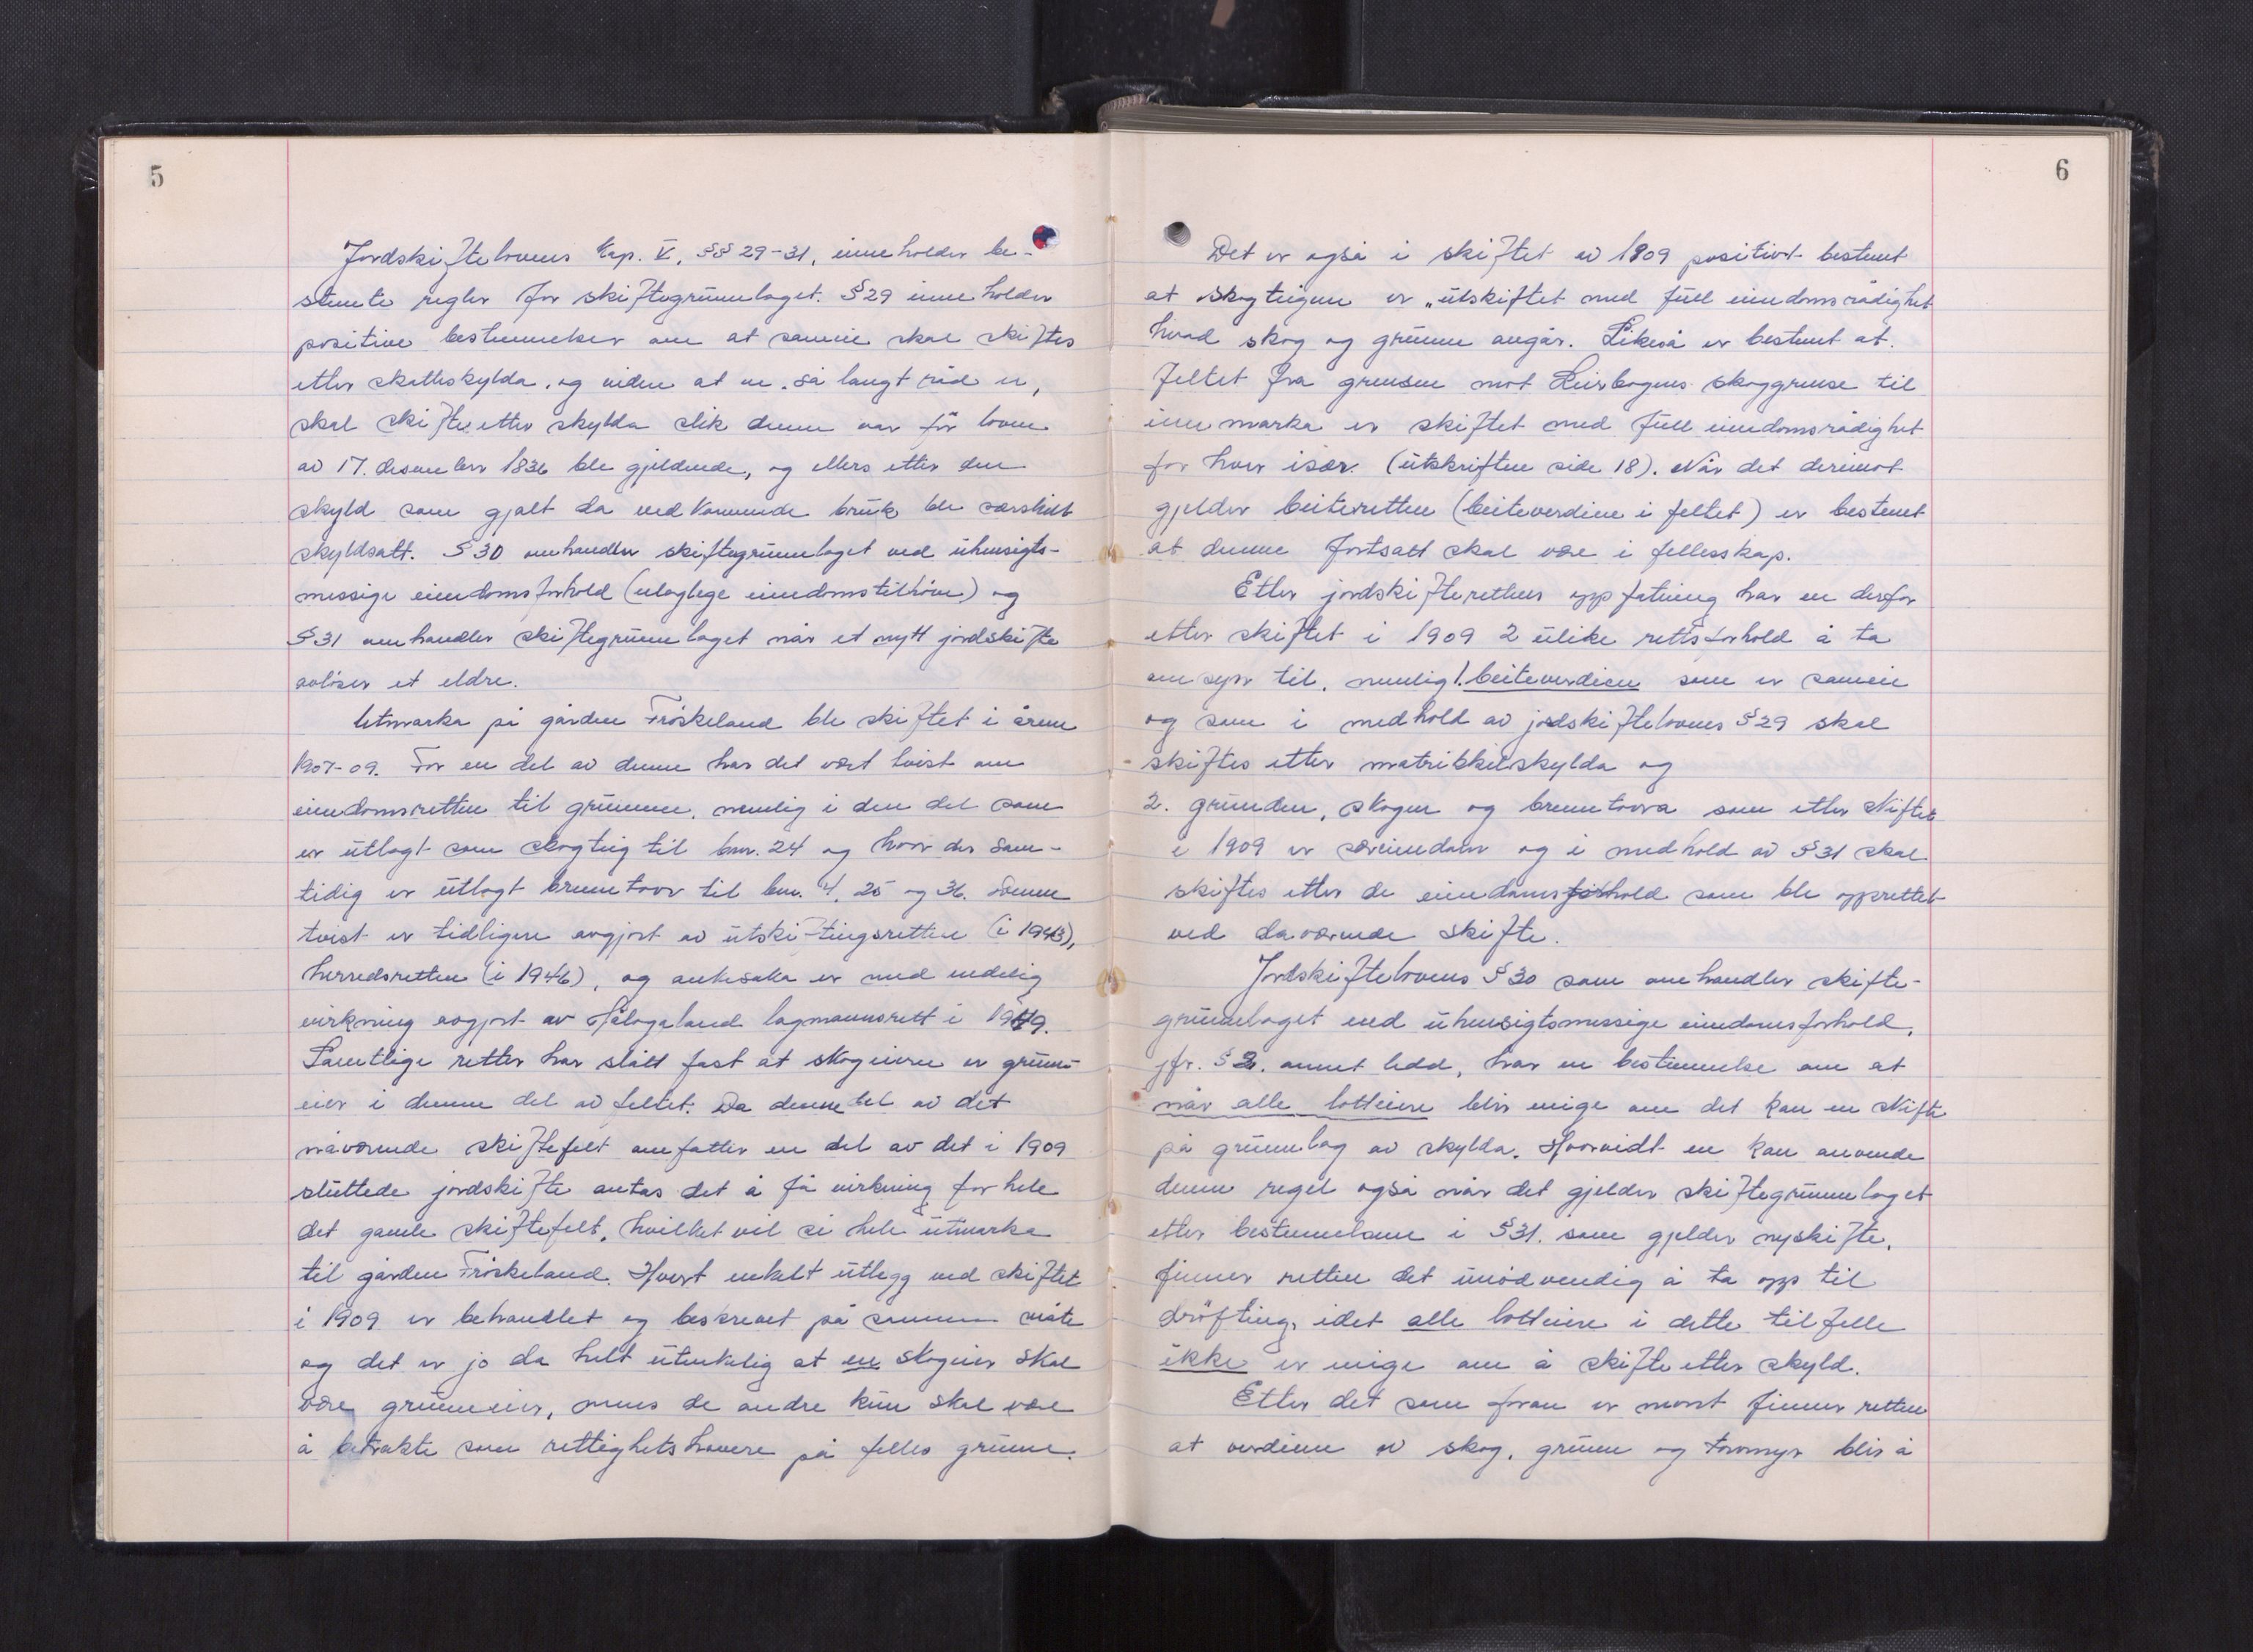 5
Jordskiftelovens Kap. V, §§ 29-31, inneholder be-
stemte regler for skiftegrunnlaget. §29 inneholder
positive bestemmelser om at sameie skal skiftes
etter skatteskylda, og viden at en, så langt råd er,
skal skifte etter skylda slik denne var før loven
av 17. desember 1836 ble gjeldende, og ellers etter den
skyld som gjalt da vedkommende bruk ble særskilt
skyldsatt. §30 omhandler skiftegrunnlaget ved uhensigts-
messige eiendomsforhold (ulaglege eiendomstilhøve) og
§31 omhandler skiftegrunnlaget når et nytt jordskifte
avløser et eldre.
Utmarka på gården Frøskeland ble skiftet i årene
1907-09. For en del av denne har det vært tvist om
eiendomsretten til grunnen, nemlig i den del som
er utlagt som skogteig til bnr. 24 og hvor der sam-
tidig er utlagt brenntorv til bnr. 4, 25 og 36. Denne
tvist er tidligere avgjort av utskiftingsretten (i 1943),
herredsretten (i 1946), og ankesaka er med endelig
virkning avgjort av Hålogaland lagmannsrett i 1949.
Samtlige retter har slått fast at skogeieren er grunn-
eier i denne del av feltet. Da denne del av det
nåværende skiftefelt omfatter en del av det i 1909
sluttede jordskifte antas det å få virkning for hele
det gamle skiftefelt, hvilket vil si hele utmarka
til gården Frøskeland. Hvert enkelt utlegg ved skiftet
i 1909 er behandlet og beskrevet på samme måte
og det er jo da helt utenkelig at en skogeier skal
være grunneier, mens de andre kun skal være
å betrakte som rettighetshavere på felles grunn.
6
Det er også i skiftet av 1909 positivt bestemt
at skogteigene er „utskiftet med full eiendomsrådighet
hvad skog og grunn angår. Likeså er bestemt at
feltet fra grensen mot Leirbogens skoggrense til
innmarka er skiftet med full eiendomsrådighet
for hver især. (utskriften side 18). Når det derimot
gjelder beiteretten (beiteverdien i feltet) er bestemt
at denne fortsatt skal være i fellesskap.
Etter jordskifterettens oppfatning har en derfor
etter skiftet i 1909 2 ulike rettsforhold å ta
omsyn til, nemlig 1. beiteverdien som er sameie
og som i medhold av jordskiftelovens §29 skal
skiftes etter matrikkelskylda og
2. grunnen, skogen og brenntorva som etter skiftet
i 1909 er særeiendom og i medhold av §31 skal
skiftes etter de eiendomsforhold som ble opprettet
ved daværende skifte.
Jordskiftelovens §30 som omhandler skifte-
grunnlaget ved uhensigtsmessige eiendomsforhold,
jfr. §2. annet ledd, har en bestemmelse om at
når alle lotteiere blir enige om det kan en skifte
på grunnlag av skylda. Hvorvidt en kan anvende
denne regel også når det gjelder skiftegrunnlaget
etter bestemmelsene i §31. som gjelder nyskifte,
finner retten det unødvendig å ta opp til
drøfting, idet alle lotteiere i dette tilfelle
ikke er enige om å skifte etter skyld.
Etter det som foran er nevnt finner retten
at verdiene av skog, grunn og torvmyr blir å